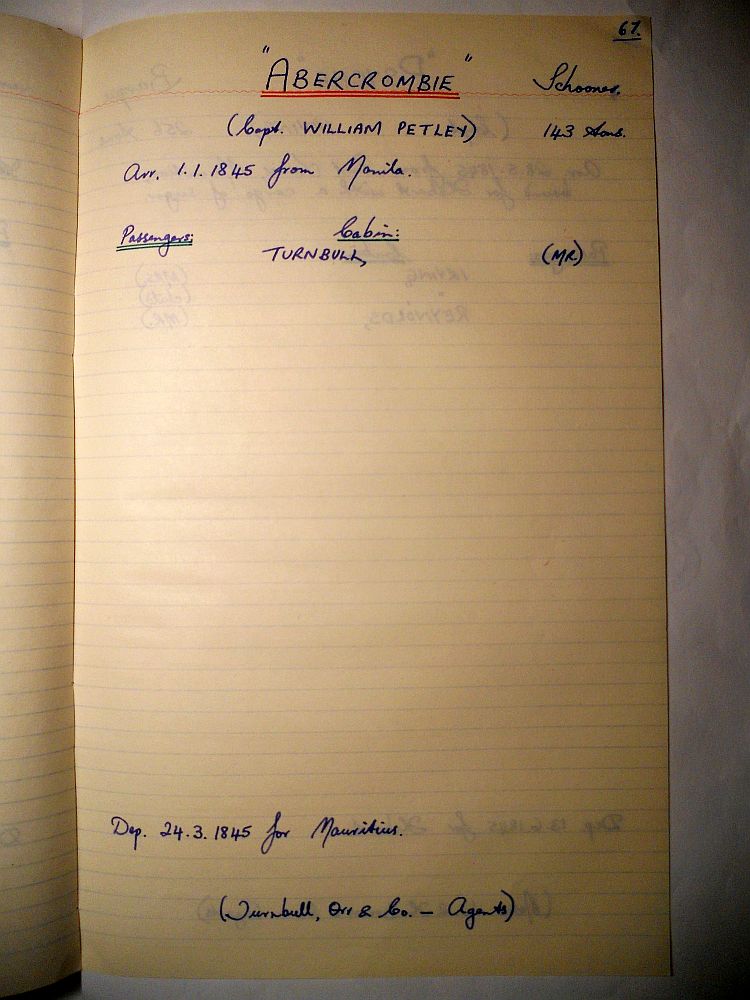 67.
"ABERCROMBIE" Schooner.
(Capt. WILLIAM PETLEY) 143 tons.
Arr. 1.1.1845 from Manila.
Passengers: Cabin:
TURNBULL, (MR)
Dep. 24.3.1845 for Mauritius.
(Turnbull, Orr & Co. — Agents)